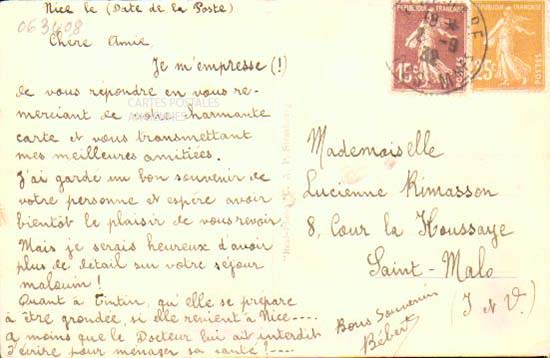 Nice le (Date de la Poste)
063408
Chere Amie
Je m'empresse (!)
de vous répondre en vous re-
merciant de votre charmante
carte et vous transmettant
mes meilleures amitiées.
J'ai gardé un bon souvenir de
votre personne et espère avoir
bientôt le plaisir de vous revoir
Mais je serais heureux d'avoir
plus de detail sur votre séjour
malouin !
Quant à Tintin, qu'elle se prépare
à être grondée, si elle revient à Nice----
a moins que le Docteur lui ait interdit
d'écrire pour ménager sa santé !----
CARTES POSTALES
ANCIENNES
REPUBLIQUE FRANÇAISE
15c
POSTES
REPUBLIQUE FRANÇAISE
25c
POSTES
Mademoiselle
Lucienne Rimasson
8, Cour la Houssaye
Saint-Malo
(I et V.)
Bons Souvenirs
Bébert